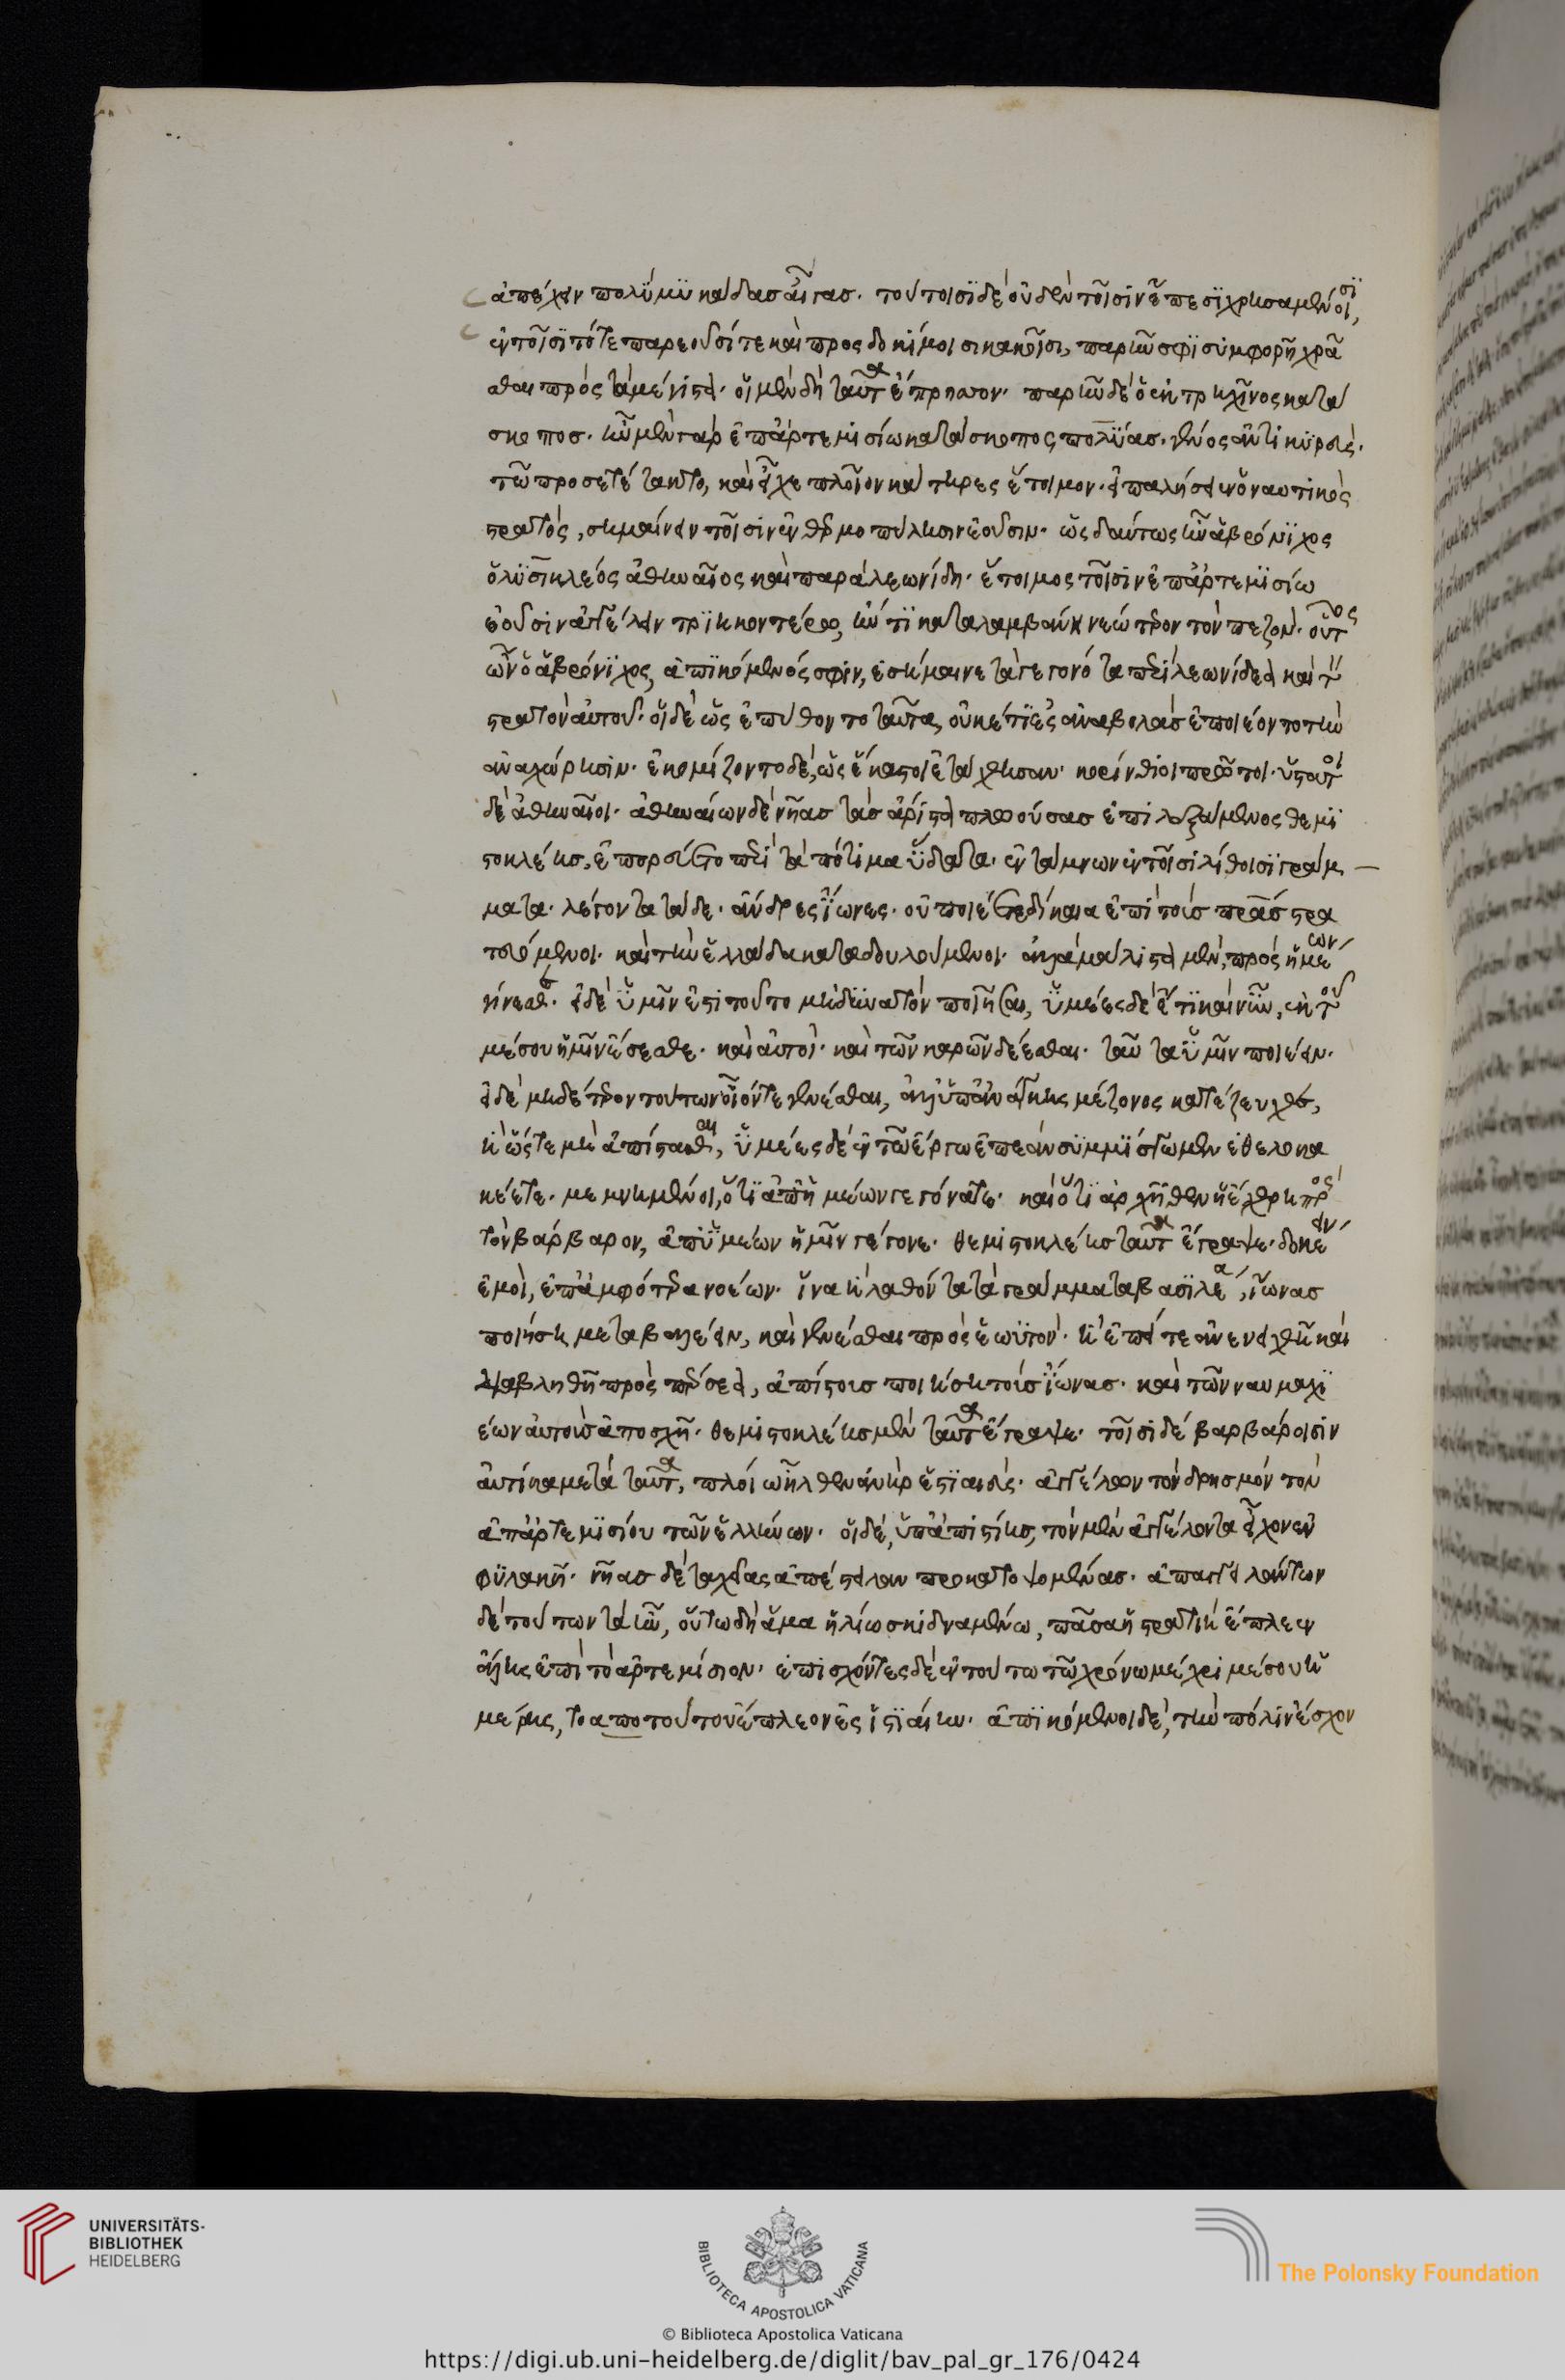 ἀπέχειν πολϋμϋκάδας αἶγας. τούτοισϊ δὲ οὐδὲν τοῖσιν ἔπεσϊ χρησαμένοισϊ,
ἐν τοῖσϊ τότε παρεοῦσί τε καὶ προςδοκίμοισι κακοῖσι, παρῆν σφϊ συμφορῇ χρᾶ
σθαι πρὸς τὰ μέγιστα. οἱ μὲν δὴ ταῦτα ἔπρησσον. παρῆν δὲ ὁ ἐκ τρηχῖνος κατά
σκοπος. ἦν μὲν γὰρ ἐπ' ἀρτεμισίω κατάσκοπος πολϋας. γένος ἀντικϋρεύς.
τῶ προσετέτακτο, καὶ εἶχε πλοῖον κατῆρες ἕτοιμον. εἰ παλήσειεν ὁ ναυτικὸς
στρατός, σημαίνειν τοῖσιν ἐν θερμοπύλησιν ἐοῦσιν. ὣς δ' αὔτως ἦν ἀβρόνϊχος
ὁ λϋσικλέος ἀθηναῖος καὶ παρὰ λεωνίδη. ἕτοιμος τοῖσιν ἐπ' ἀρτεμϊσίω
ἐοῦσιν ἀγγέλλειν τρϊηκοντέρω, ἤν τϊ καταλαμβάνη νεώτερον τὸν πεζόν. οὗτος
ὦν ὁ ἀβρόνϊχος, ἀπϊκόμενός σφιν, ἐσήμαινε τὰ γεγονότα περὶ λεωνίδεα καὶ τὸν
στρατὸν αὐτοῦ. οἱ δὲ ὡς ἐπύθοντο ταῦτα, οὐκέτϊ ἐς ἀναβολὰς ἐποιέοντο τὴν
ἀναχώρησιν. ἐκομίζοντο δὲ, ὡς ἕκαστοι ἐτάχθησαν. κορίνθιοι πρῶτοι. ὕστατοι
δὲ ἀθηναῖοι. ἀθηναίων δὲ νῆας τὰς ἄριστα πλεούσας ἐπιλεξάμενος θεμϊ
στοκλέης, ἐπορεύετο περὶ τὰ πότιμα ὕδατα. ἐντάμνων ἐν τοῖσι λίθοισϊ γράμ
ματα. λέγοντα τάδε. ἄνδρες ἴωνες. οὐ ποιέετε δίκαια ἐπὶ τοὺς πατέρας στρα
τευόμενοι. καὶ τὴν ἑλλάδα καταδουλούμενοι. ἀλλὰ μάλιστα μὲν, πρὸς ἡμέων
γίνεσθε. εἰ δὲ ὑμῖν ἐστι τοῦτο μὴ δϋνατὸν ποιῆσαι, ὑμέες δὲ ἔτϊ καὶ νῦν, ἐκ τοῦ
μέσου ἡμῖν ἕζεσθε. καὶ αὐτοὶ. καὶ τῶν καρῶν δέεσθαι. ταὐτὰ ὑμῖν ποιέειν.
εἰ δὲ μηδέτερον τούτων οἷόν τε γενέσθαι, ἀλλ' ὑπ' ἀναγκαίης μέζονος κατέζευχθε,
ἢ ὥστε μὴ ἀπίστασθαι, ὑμέες δὲ ἐν τῶ ἔργω ἐπεὰν συμμϊσγωμεν ἐθελοκα
κέετε. μεμνημένοι, ὅτϊ ἀπ' ἡμέων γεγόνατε. καὶ ὅτϊ ἀρχῆθεν ἡ ἔχθρη πρὸς
τὸν βάρβαρον, ἀπ' ὑμέων ἡμῖν γέγονε. θεμιστοκλέης ταῦτα ἔγραψε. δοκέειν
ἐμοὶ, ἐπ' ἀμφότερα νοέων. ἵνα ἢ λαθόντα τὰ γράμματα βασϊλέα, ἴωνας
ποιήση μεταβαλέειν, καὶ γενέσθαι πρὸς ἑωϋτόν. ἢ ἐπεί τε ἀνενειχθῆ καὶ
διαβληθῆ πρὸς ξέρξεα, ἀπίστους ποιήση τοὺς ἴωνας. καὶ τῶν ναυμαχϊ
έων αὐτοὺς ἀπόσχῃ. θεμιστοκλέης μὲν ταῦτα ἔγραψε. τοῖσι δὲ βαρβάροισιν
αὐτίκα μετὰ ταῦτα, πλοίω ἦλθεν ἀνὴρ ἑστϊαιεὺς. ἀγγέλλων τὸν δρησμὸν τὸν
ἀπ' ἀρτεμϊσίου τῶν ἑλλήνων. οἱ δὲ, ὑπ' ἀπιστίης, τὸν μὲν ἀγγέλλοντα εἶχον ἐν
φϋλακῆ. νῆας δὲ ταχείας ἀπέστειλαν προκατοψομένας. ἀπαγγειλάντων
δὲ τούτων τὰ ἦν, οὕτω δὴ ἅμα ἡλίω σκιδναμένω, πᾶσα ἡ στρατιὴ ἔπλεεν
ἁλὴς ἐπὶ τὸ ἀρτεμίσιον. ἐπισχόντες δὲ ἐν τούτω τῶ χρόνω μέχρι μέσου ἡ
μέρης, τὸ ἀπὸ τούτου ἔπλεον ἐς ἱστϊαίην. ἀπϊκόμενοι δὲ, τὴν πόλιν ἔσχον
UNIVERSITÄTS-
BIBLIOTHEK
HEIDELBERG
BIBLIOTECA APOSTOLICA VATICANA
The Polonsky Foundation
© Biblioteca Apostolica Vaticana
https://digi.ub.uni-heidelberg.de/diglit/bav_pal_gr_176/0424